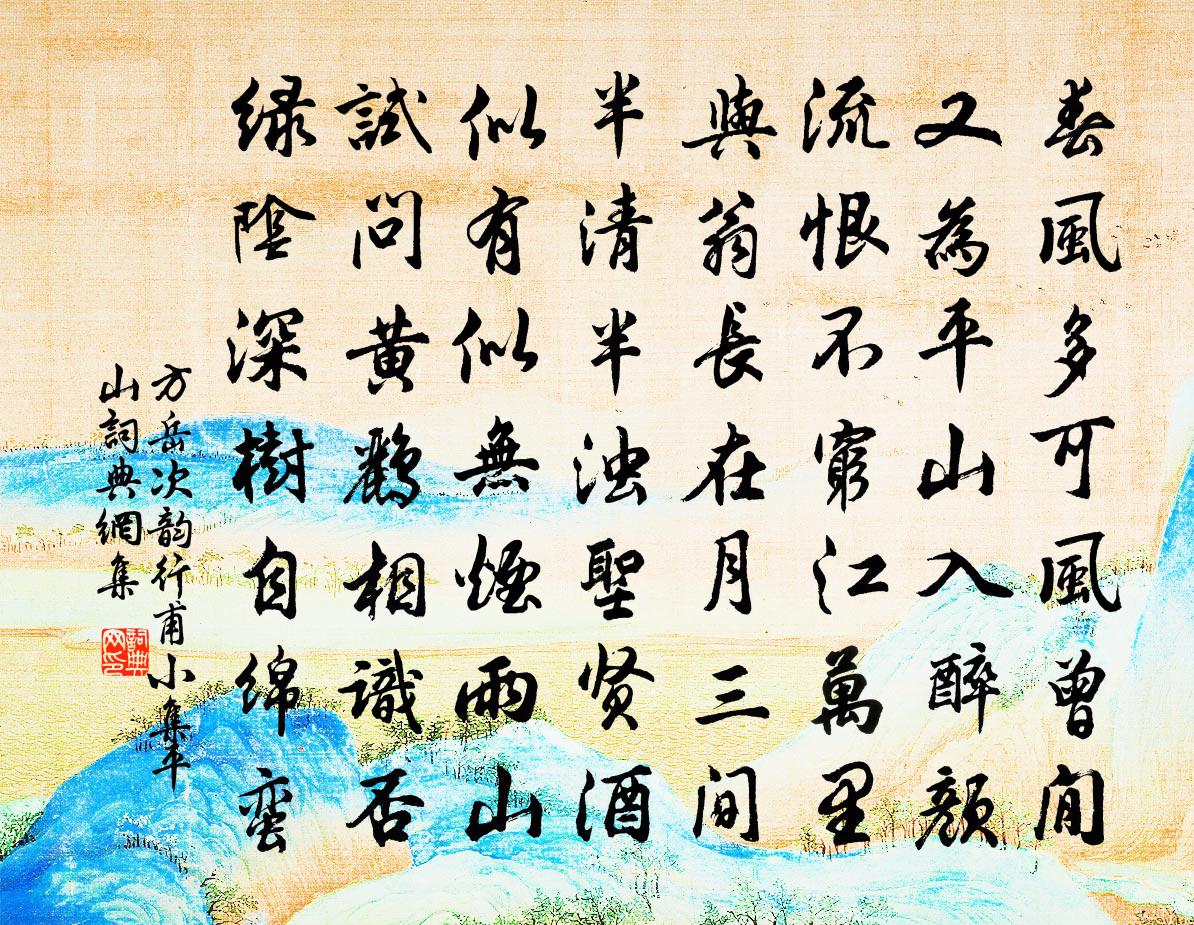 春風多可風曾閒
又為平山入醉顏
流恨不窮江萬里
與翁長在月三間
半清半浊聖贤酒
似有似無煙雨山
試問黃鸝相識否
緑陰深樹自綿蛮
方岳次韵行甫小集平
山詞典網集
詞典網印